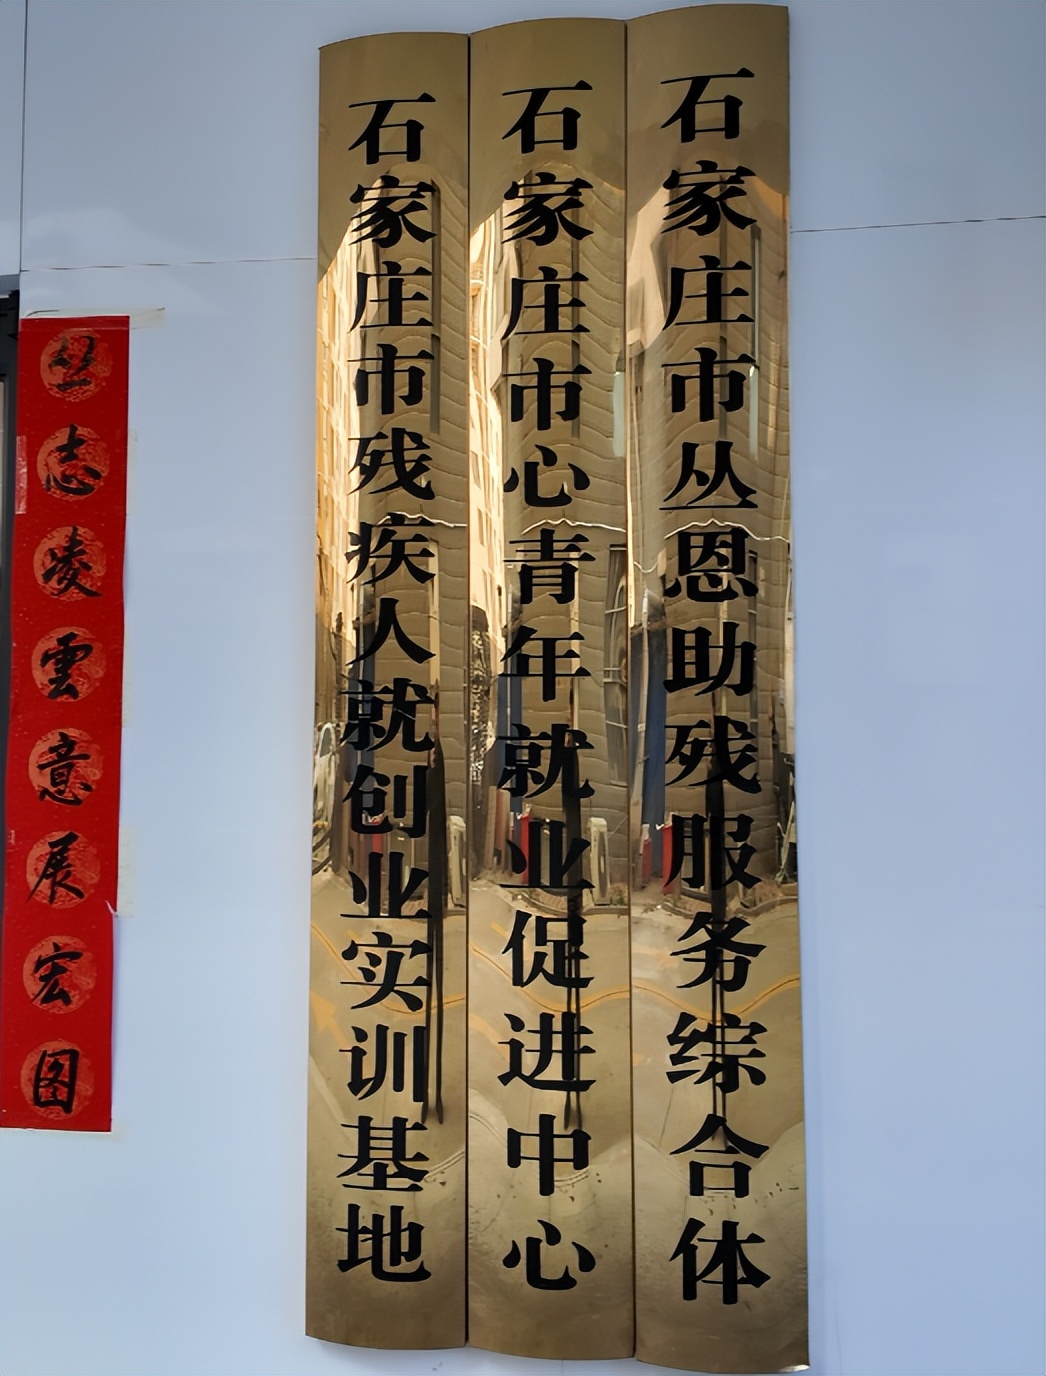 石家庄市残疾人就创业实训基地
石家庄市心青年就业促进中心
石家庄市丛恩助残服务综合体
立志凌雲意展宏图